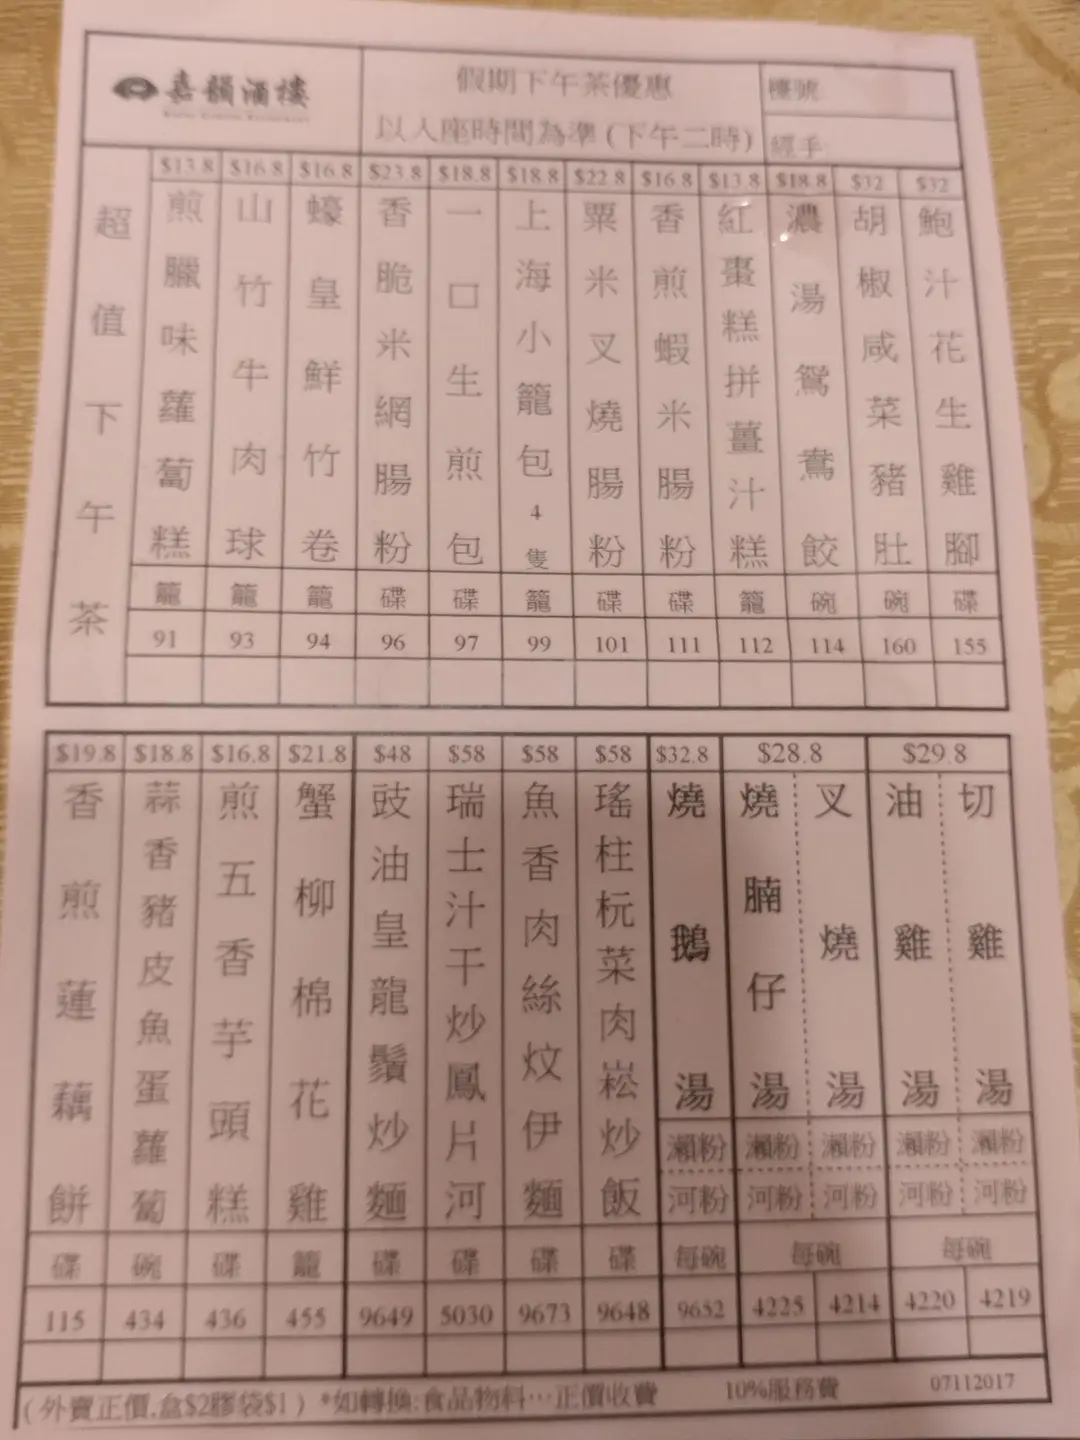 嘉韻酒樓
假期下午茶優惠
以入座時間為準(下午二時)
檯號
經手
超值下午茶
$13.8 煎臘味蘿蔔糕 籠 91
$16.8 山竹牛肉球 籠 93
$16.8 蠔皇鮮竹卷 籠 94
$23.8 香脆米網腸粉 碟 96
$18.8 一口生煎包 碟 97
$18.8 上海小籠包4隻 籠 99
$22.8 粟米叉燒腸粉 碟 101
$16.8 香煎蝦米腸粉 碟 111
$13.8 紅棗糕拼薑汁糕 籠 112
$18.8 濃湯鴛鴦餃 碗 114
$32 胡椒咸菜豬肚 碗 160
$32 鮑汁花生雞腳 碟 155
$19.8 香煎蓮藕餅 碟 115
$18.8 蒜香豬皮魚蛋蘿蔔 碗 434
$16.8 煎五香芋頭糕 碟 436
$21.8 蟹柳棉花雞 籠 455
$48 豉油皇龍鬚炒麵 碟 9649
$58 瑞士汁干炒鳳片河 碟 5030
$58 魚香肉絲炆伊麵 碟 9673
$58 瑤柱杬菜肉崧炒飯 碟 9648
$32.8 燒鵝湯 瀨粉 河粉 每碗 9652
$28.8 燒腩仔湯 瀨粉 河粉 叉燒湯 瀨粉 河粉 每碗 4225 4214
$29.8 油雞湯 瀨粉 河粉 切雞湯 瀨粉 河粉 每碗 4220 4219
(外賣正價,盒$2膠袋$1) *如轉換:食品物料…正價收費 10%服務費 07112017